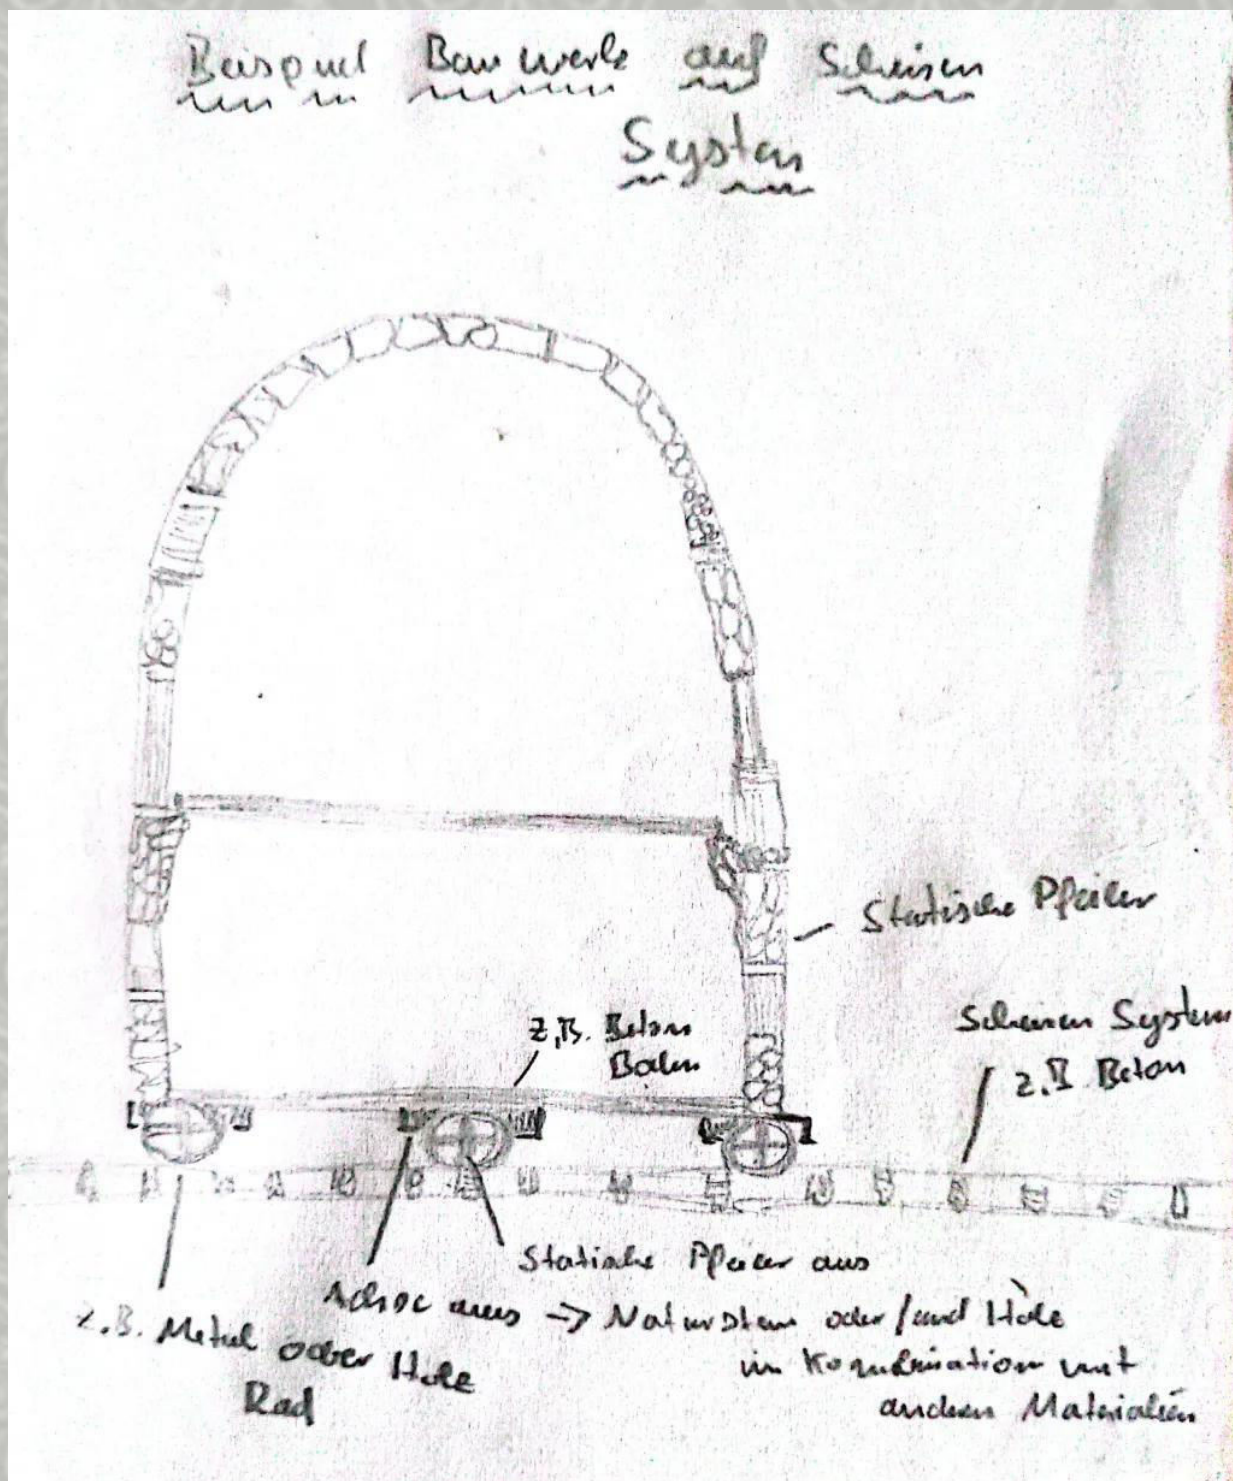 Beispiel Bauwerk auf Schienen
System
Statische Pfeiler
z.B. Beton
Boden
Schienen System
z.B Beton
Statische Pfeiler aus
Achse aus → Naturstein oder/und Holz
in Kombination mit
anderen Materialien
z.B. Metal oder Holz
Rad